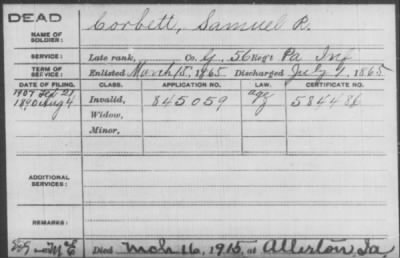 DEAD
NAME OF SOLDIER: Corbett, Samuel R.
SERVICE: Late rank, Co. G, 56 Reg't Pa Inf
TERM OF SERVICE: Enlisted March 15, 1865 Discharged July 1, 1865
DATE OF FILING. CLASS. APPLICATION NO. LAW. CERTIFICATE NO.
1907 Feb 21
1890 Aug 4 Invalid, 845059 584486
Widow,
Minor,
ADDITIONAL SERVICES:
REMARKS:
Died Mch 16, 1915, at Allerton, Ia.